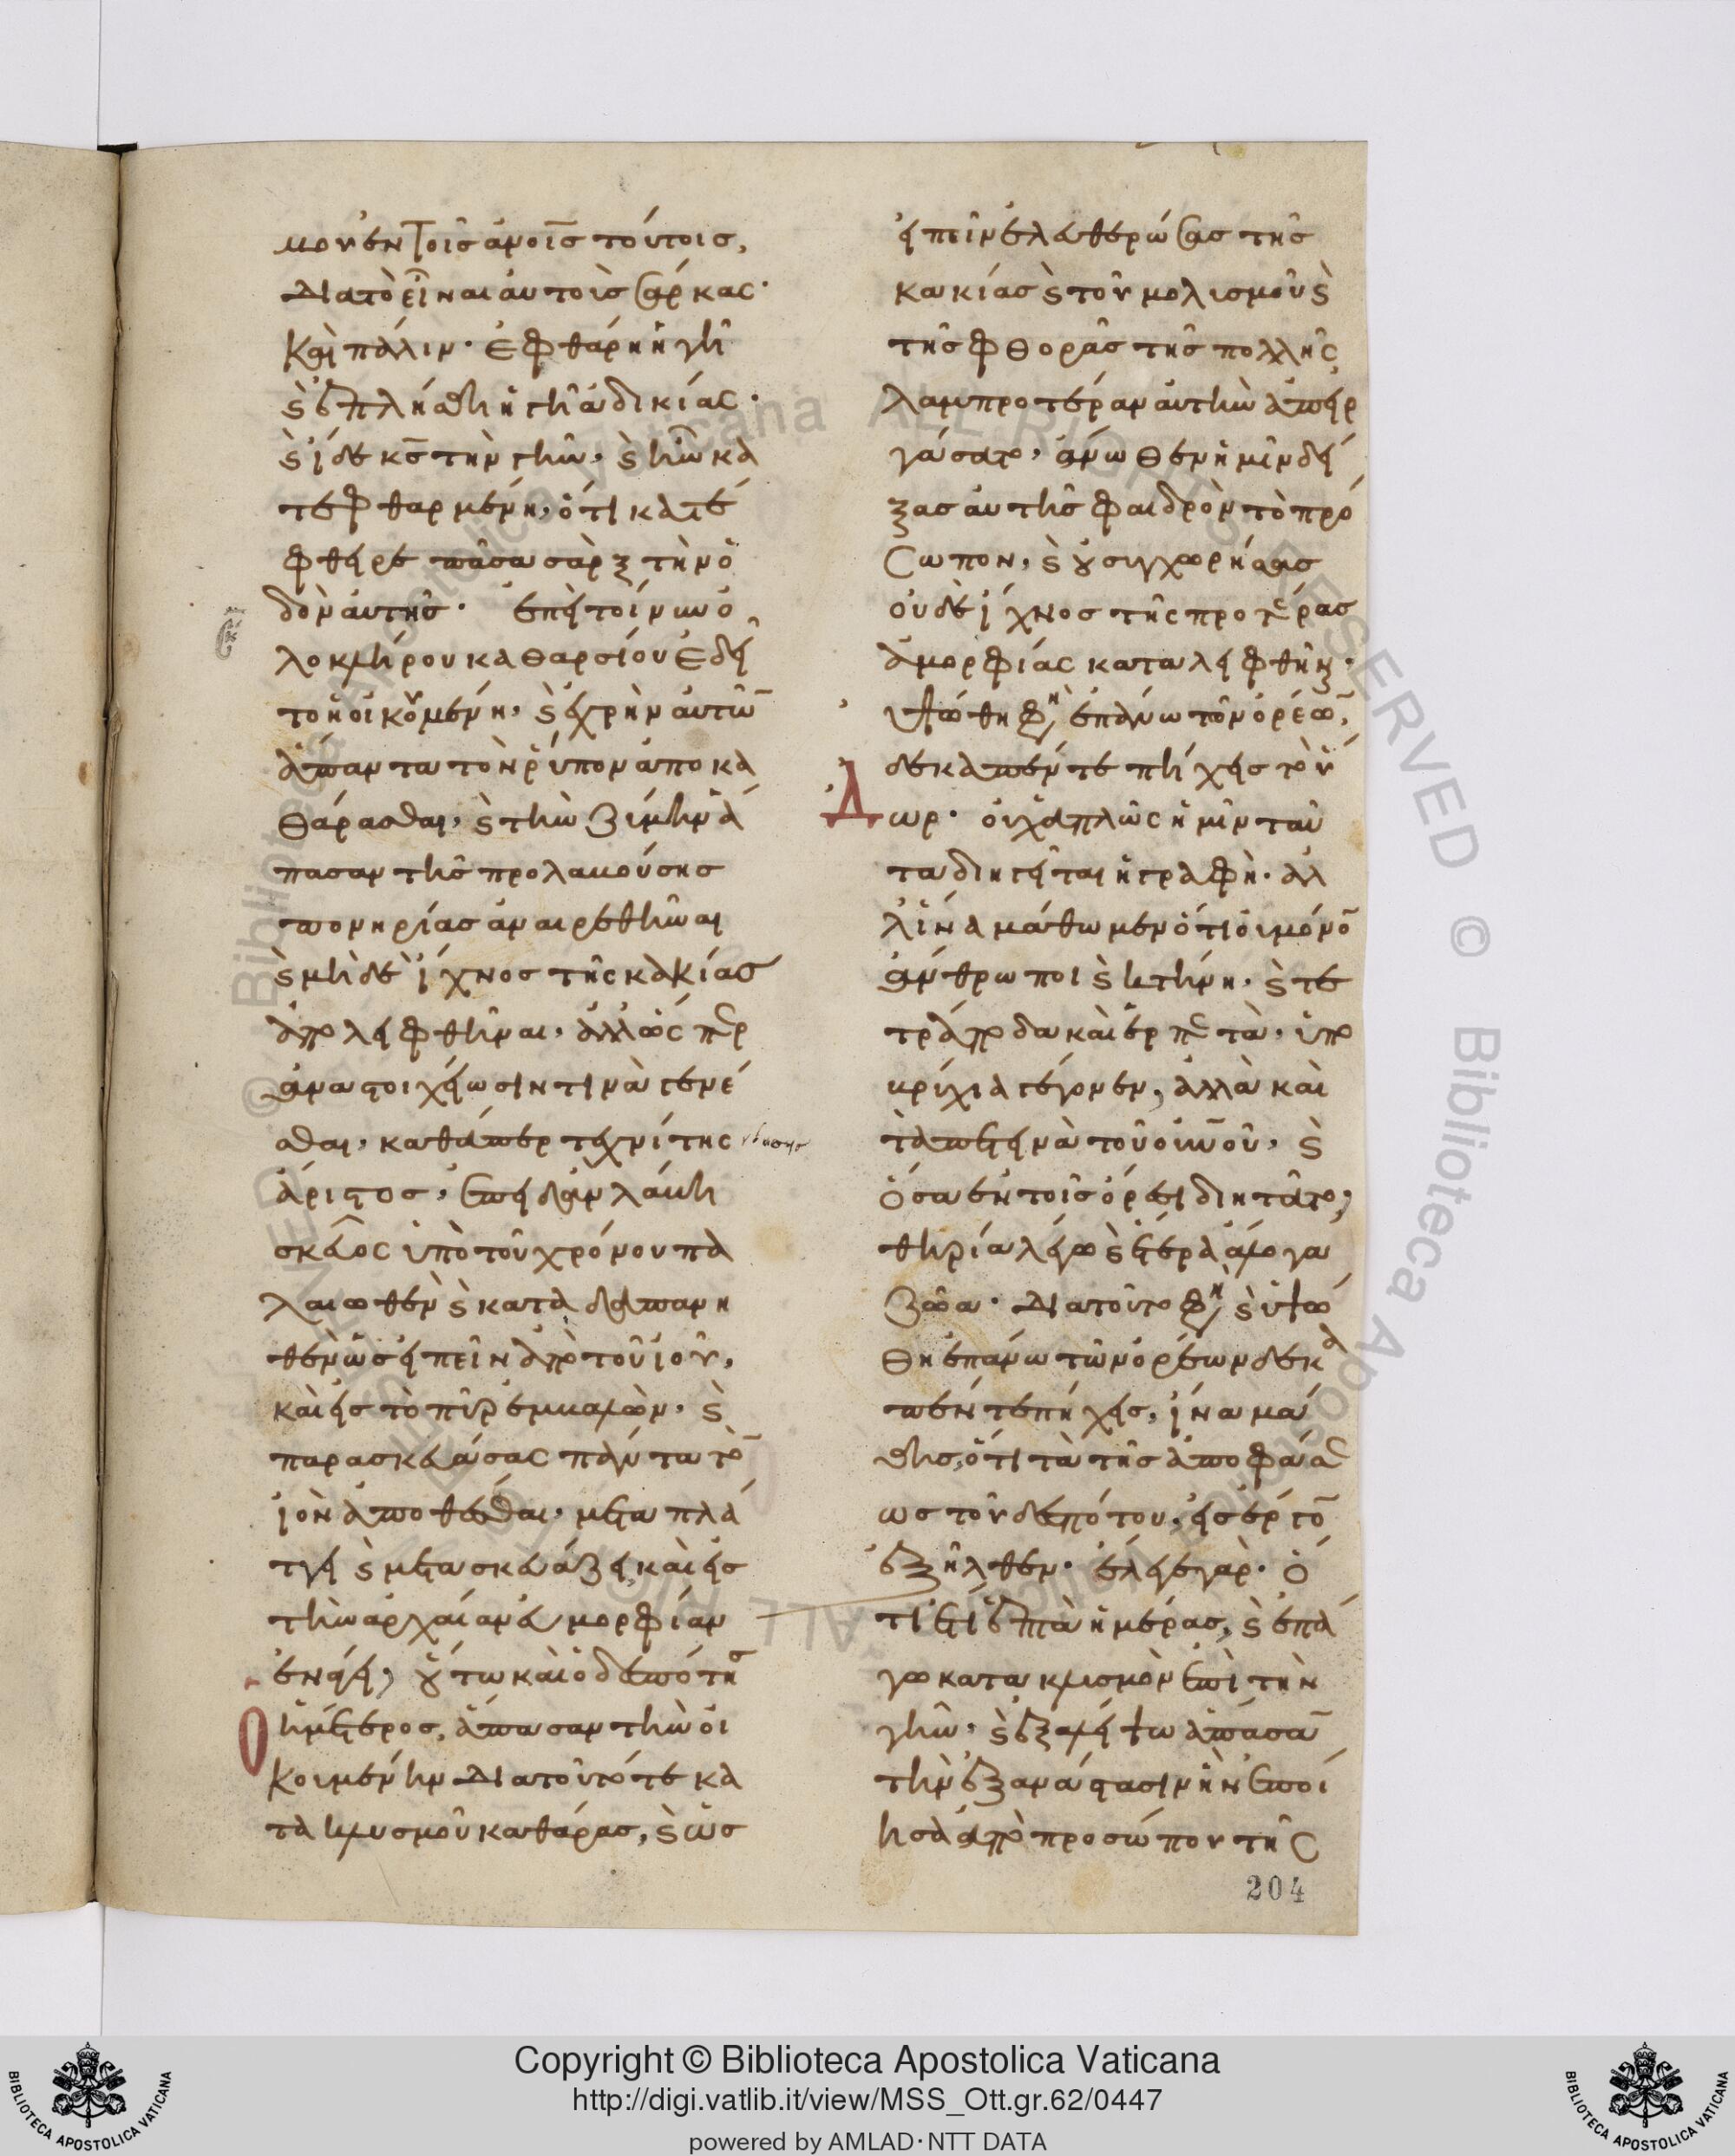 μου ἐν τοῖς ἀνοις τούτοις,
διατὸ εἶναι αὐτοὺς σάρκας·
καὶ πάλιν· ἐφθάρη ἡ γῆ
ϗ ἐπλήσθη ἡ γῆ ἀδικίας·
ϗ ἴδε κς τὴν γῆν, ϗ ἦν κα
τεφθαρμένη, ὅτι κατέ
φθειρε πᾶσα σὰρξ τὴν ὁ
δὸν αὐτῆς· ἐπεὶ τοίνυν ὁ
λοκλήρου καθαρσίου ἐδεῖ
το ἡ οἰκουμένη, ϗ ἐχρῆν αὐτῶν
ἅπαντα τὸν ῥύπον ἀποκα
θάρασθαι, ϗ τὴν ζύμην ἅ
πασαν τῆς προλαβούσης
πονηρίας ἀναιρεθῆναι
ϗ μηδὲ ἴχνος τῆς κακίας
ἀπολειφθῆναι, ἀλλ' ὥσπερ
ἀναστοιχείωσίν τινα γενέ
σθαι, καθάπερ τεχνίτης
ἄριστος, ἐπειδὰν λάβη
σκεῦος ὑπὸ τοῦ χρόνου πα
λαιωθὲν ϗ καταδαπανη
θὲν ὡς εἰπεῖν ἀπὸ τοῦ ἰοῦ,
καὶ εἰς τὸ πῦρ ἐμβαλὼν, ϗ
παρασκευάσας πάντα τὸν
ἰὸν ἀποθέσθαι, μεταπλά
ττει ϗ μετασκευάζει, καὶ εἰς
τὴν ἀρχαίαν εὐμορφίαν
ἐνάγει, οὕτω καὶ ὁ δεσπότης
ὁ ἡμέτερος, ἅπασαν τὴν οἰ
κουμένην διατοῦτό τε κα
τακλυσμοῦ καθάρας, ϗ ὡς
εἰπεῖν ἐλευθερώσας τῆς
κακίας ϗ τοῦ μολυσμοῦ ϗ
τῆς φθορᾶς τῆς πολλῆς,
λαμπροτέραν αὐτὴν ἀπειρ
γάσατο, ἄνωθεν ἡμῖν δεί
ξας αὐτῆς φαιδρὸν τὸ πρό
σωπον, ϗ οὐ συγχωρήσας
οὐδὲ ἴχνος τῆς προτέρας
ἀμορφίας καταλειφθῆναι·
ὑψώθη φησὶν ἐπάνω τῶν ὀρέων,
δεκαπέντε πήχεις τὸ ὕ
δωρ· οὐχ ἁπλῶς ἡμῖν ταῦ
τα διηγεῖται ἡ γραφὴ· ἀλ
λ' ἵνα μάθωμεν ὅτι οὐ μόνον
ἄνθρωποι ϗ κτήνη, ϗ τε
τράποδα καὶ ἑρπετὰ, ὑπο
βρύχια γέγονεν, ἀλλὰ καὶ
τὰ πετεινὰ τοῦ οὐνοῦ, ϗ
ὅσα ἐν τοῖς ὄρεσι διητᾶτο,
θηρία λέγω ϗ ἕτερα ἄλογα
ζῶα· διατοῦτο φησὶ ϗ ὑψώ
θη ἐπάνω τῶν ὀρέων δεκα
πέντε πήχεις, ἵνα μά
θης, ὅτι τὰ τῆς ἀποφάσε
ως τοῦ δεσπότου, εἰς ἔργον
ἐξῆλθεν· ἔλεγε γὰρ· ὅ
τι ἔτι ἑπτὰ ἡμέρας, ϗ ἐπά
γω κατακλυσμὸν ἐπὶ τὴν
γῆν, ϗ ἐξαλείψω ἅπασαν
τὴν ἐξανάστασιν ἣν ἐποί
ησα ἀπὸ προσώπου τῆς
204
Copyright © Biblioteca Apostolica Vaticana
http://digi.vatlib.it/view/MSS_Ott.gr.62/0447
powered by AMLAD·NTT DATA